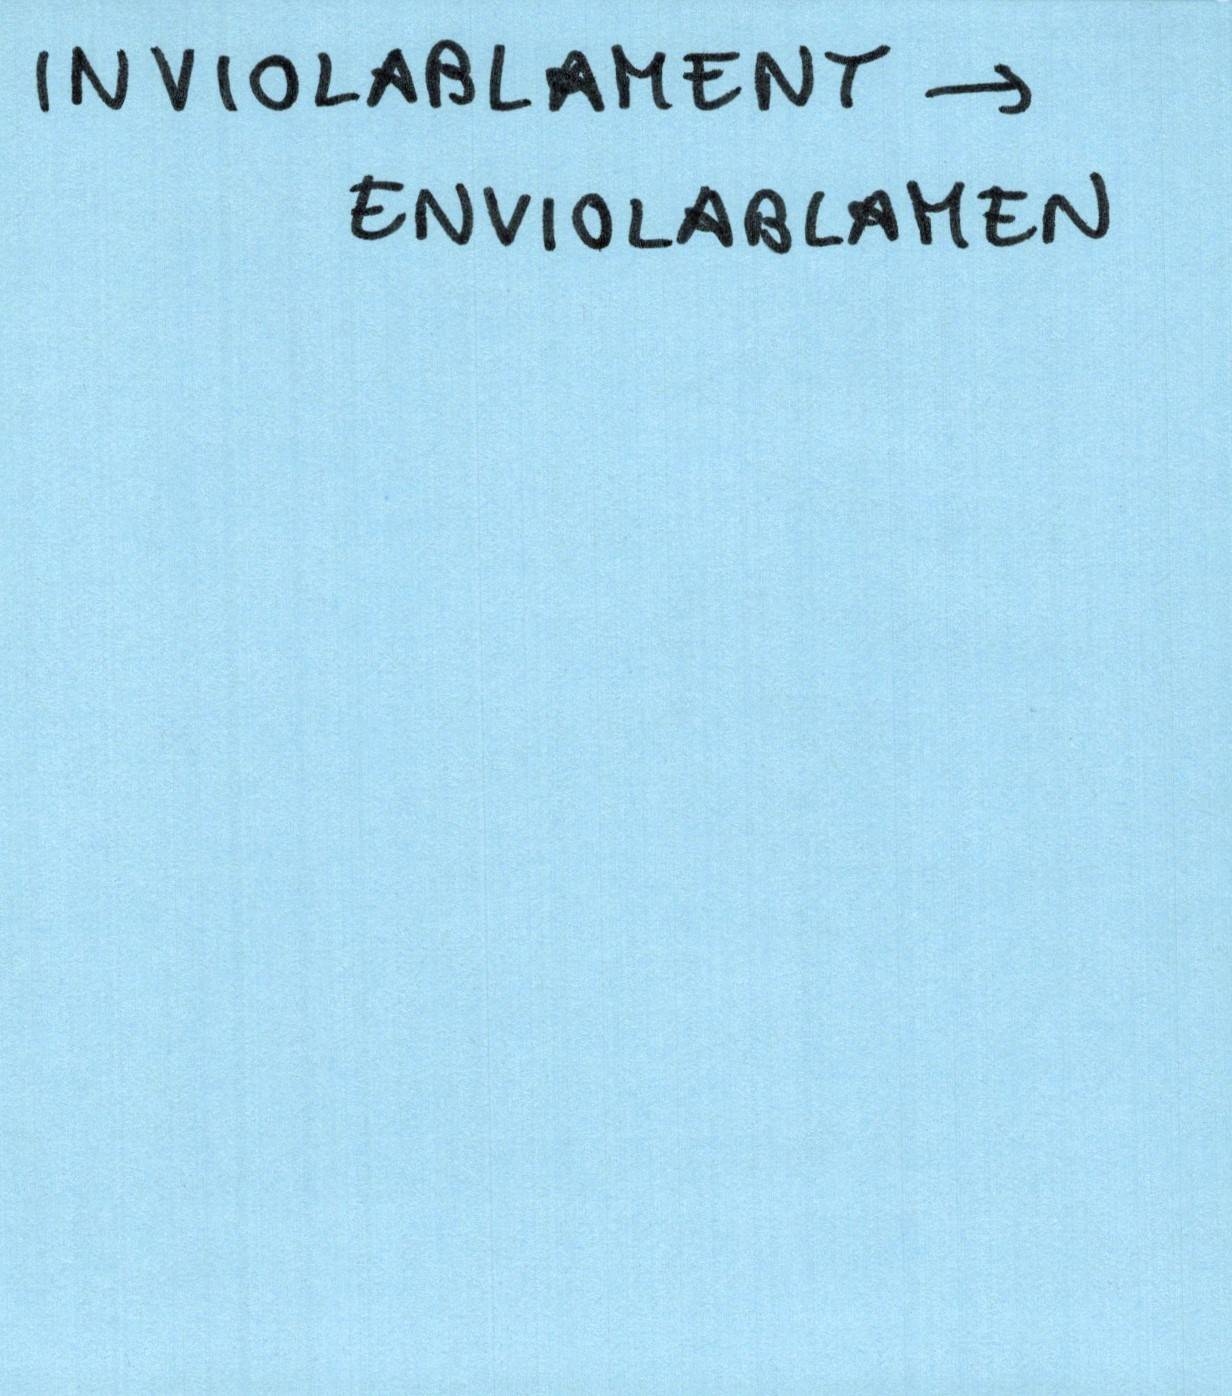 INVIOLABLAMENT →
ENVIOLABLAMEN